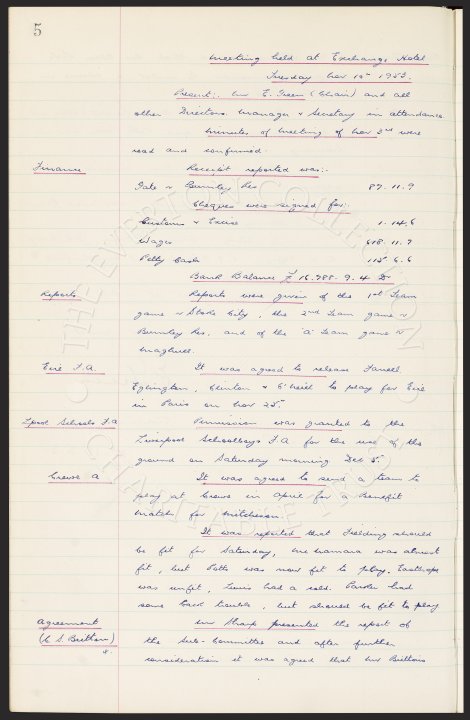 5
Meeting held at Exchange Hotel
Tuesday Nov 10th 1953.
Present:- Mr E. Green (Chair) and all
other Directors. Manager & Secretary in attendance.
Minutes of Meeting of Nov 3rd were
read and confirmed.
Finance
Receipt reported was:-
Gate v Burnley Res 89.11.9
Cheques were signed for:-
Customs & Excise 1.14.6
Wages 618.11.7
Petty Cash 115.6.6
Bank Balance £16,988.9.4 Dr
Reports
Reports were given of the 1st Team
game v Stoke City, the 2nd Team game v
Burnley Res. and of the 'A' Team game v
Maghull.
Eire F.A.
It was agreed to release Farrell
Eglington, Clinton & O'Neill to play for Eire
in Paris on Nov 25th
Lpool Schools F.A
Permission was granted to the
Liverpool Schoolboys F.A for the use of the
ground on Saturday morning Dec 5.
Crewe A
It was agreed to send a team to
play at Crewe in April for a Benefit
match for Mitcheson.
It was reported that Fielding should
be fit for Saturday, McNamara was almost
fit, but Potts was now fit to play.
was unfit, Lewis had a cold. Parker had
some back trouble, but should be fit to play
Agreement
(C S. Britton)
Mr Sharp presented the report of
the Sub-Committee and after further
consideration it was agreed that Mr Brittons
THE EVERTON COLLECTION
CHARITABLE TRUST